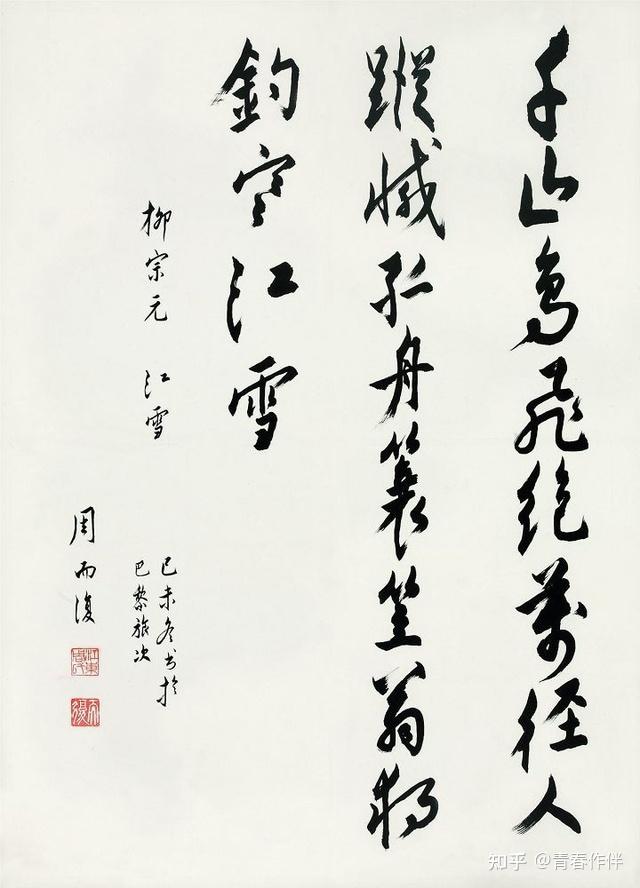 千山鸟飞绝万径人
蹤滅孤舟蓑笠翁独
釣寒江雪
柳宗元 江雪
己未冬书於
巴黎旅次
周而復
知乎 @青春作伴